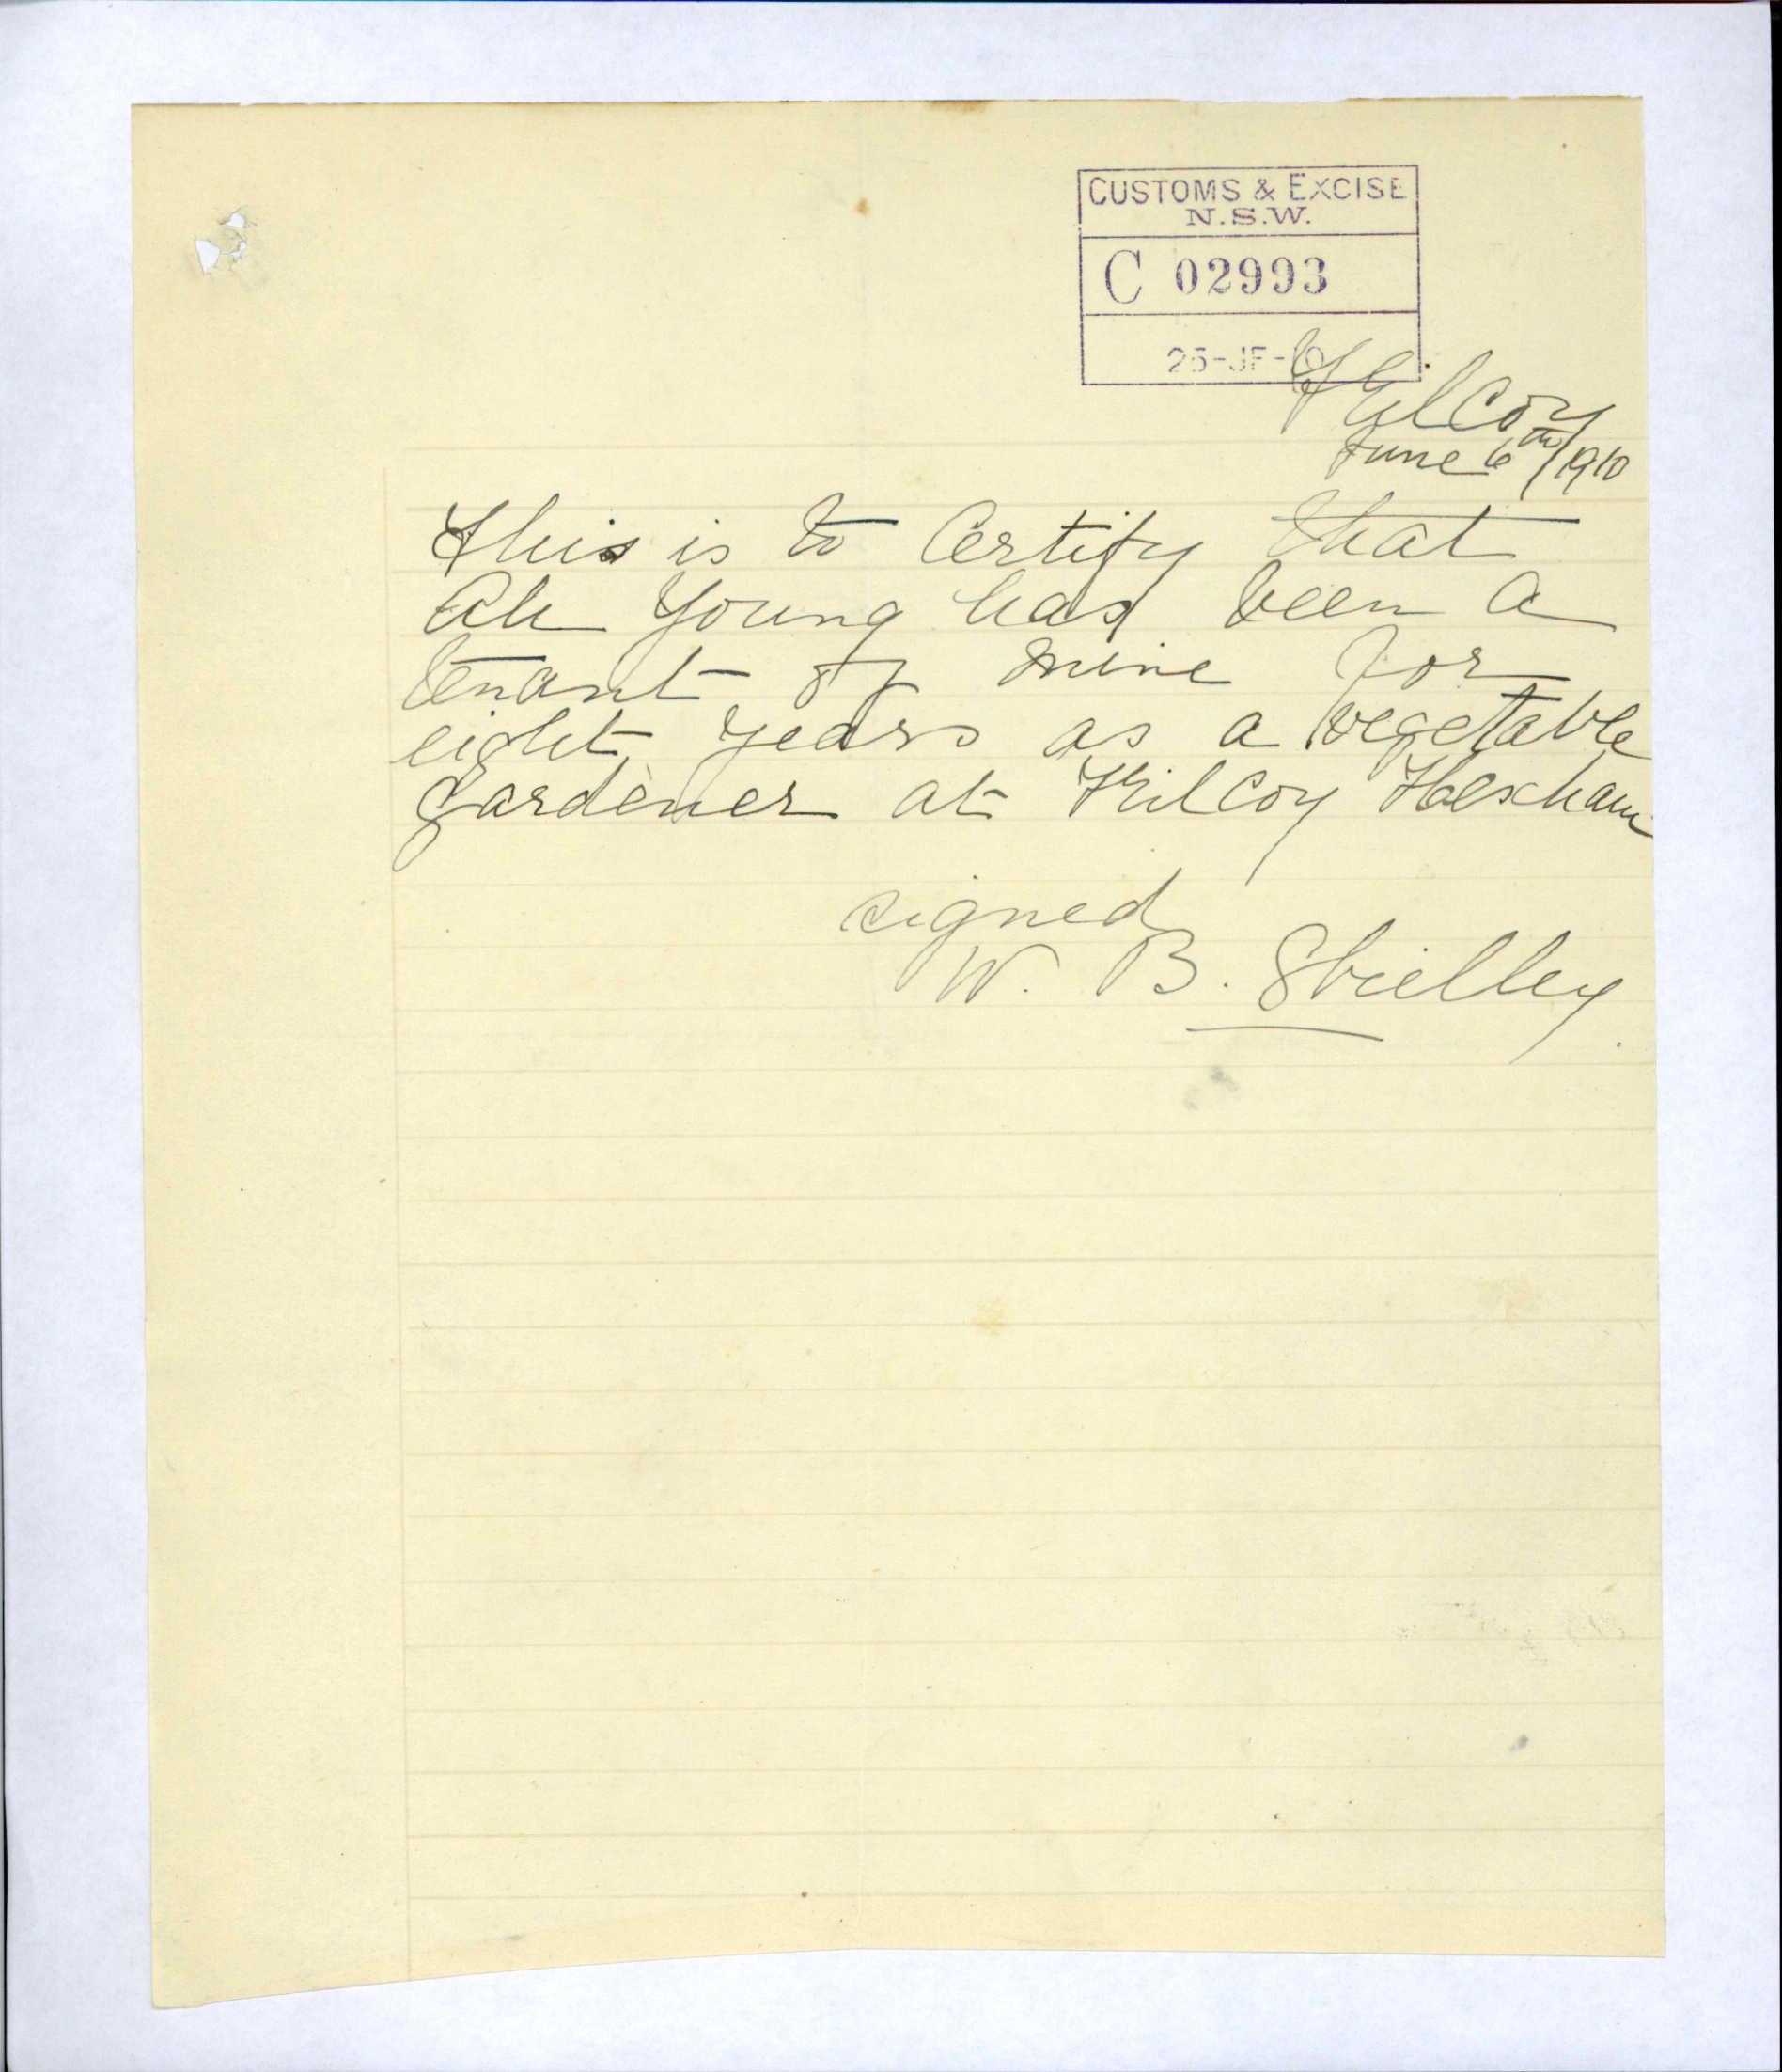 CUSTOMS & EXCISE
N.S.W.
C 02993
Kilcoy
June 6th/1910
This is to Certify that
Ah Young has been a
tenant of mine for
eight years as a vegetable
gardener at Kilcoy Hexham
signed
W. B. Shielley